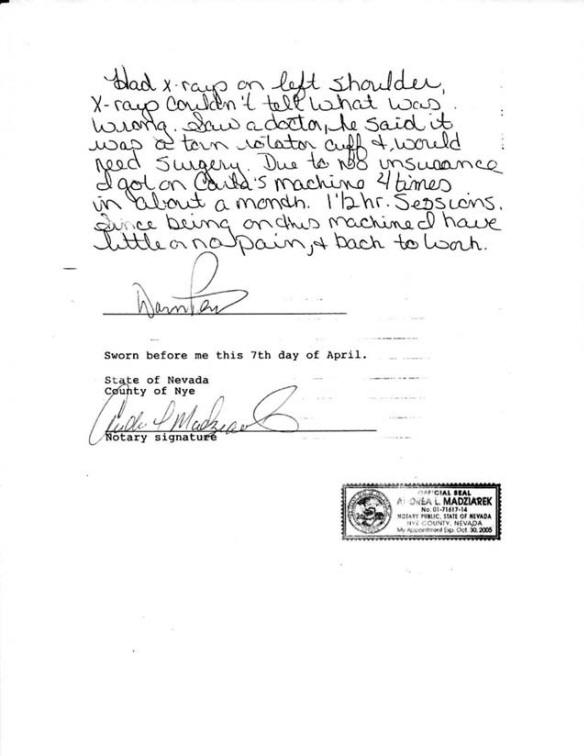 Had x-rays on left shoulder,
X-rays couldn't tell what was
wrong. Saw a doctor, he said it
was a torn rotator cuff & would
need surgery. Due to no insurance
I got on machine 4 times
in about a month. 1 1/2 hr. Sessions.
Since being on this machine I have
little or no pain, & back to work.
Sworn before me this 7th day of April.
State of Nevada
County of Nye
Notary signature
OFFICIAL SEAL
ANDREA L. MADZIAREK
No: 01-71617-14
NOTARY PUBLIC, STATE OF NEVADA
NYE COUNTY, NEVADA
My Appointment Exp. Oct. 30, 2005